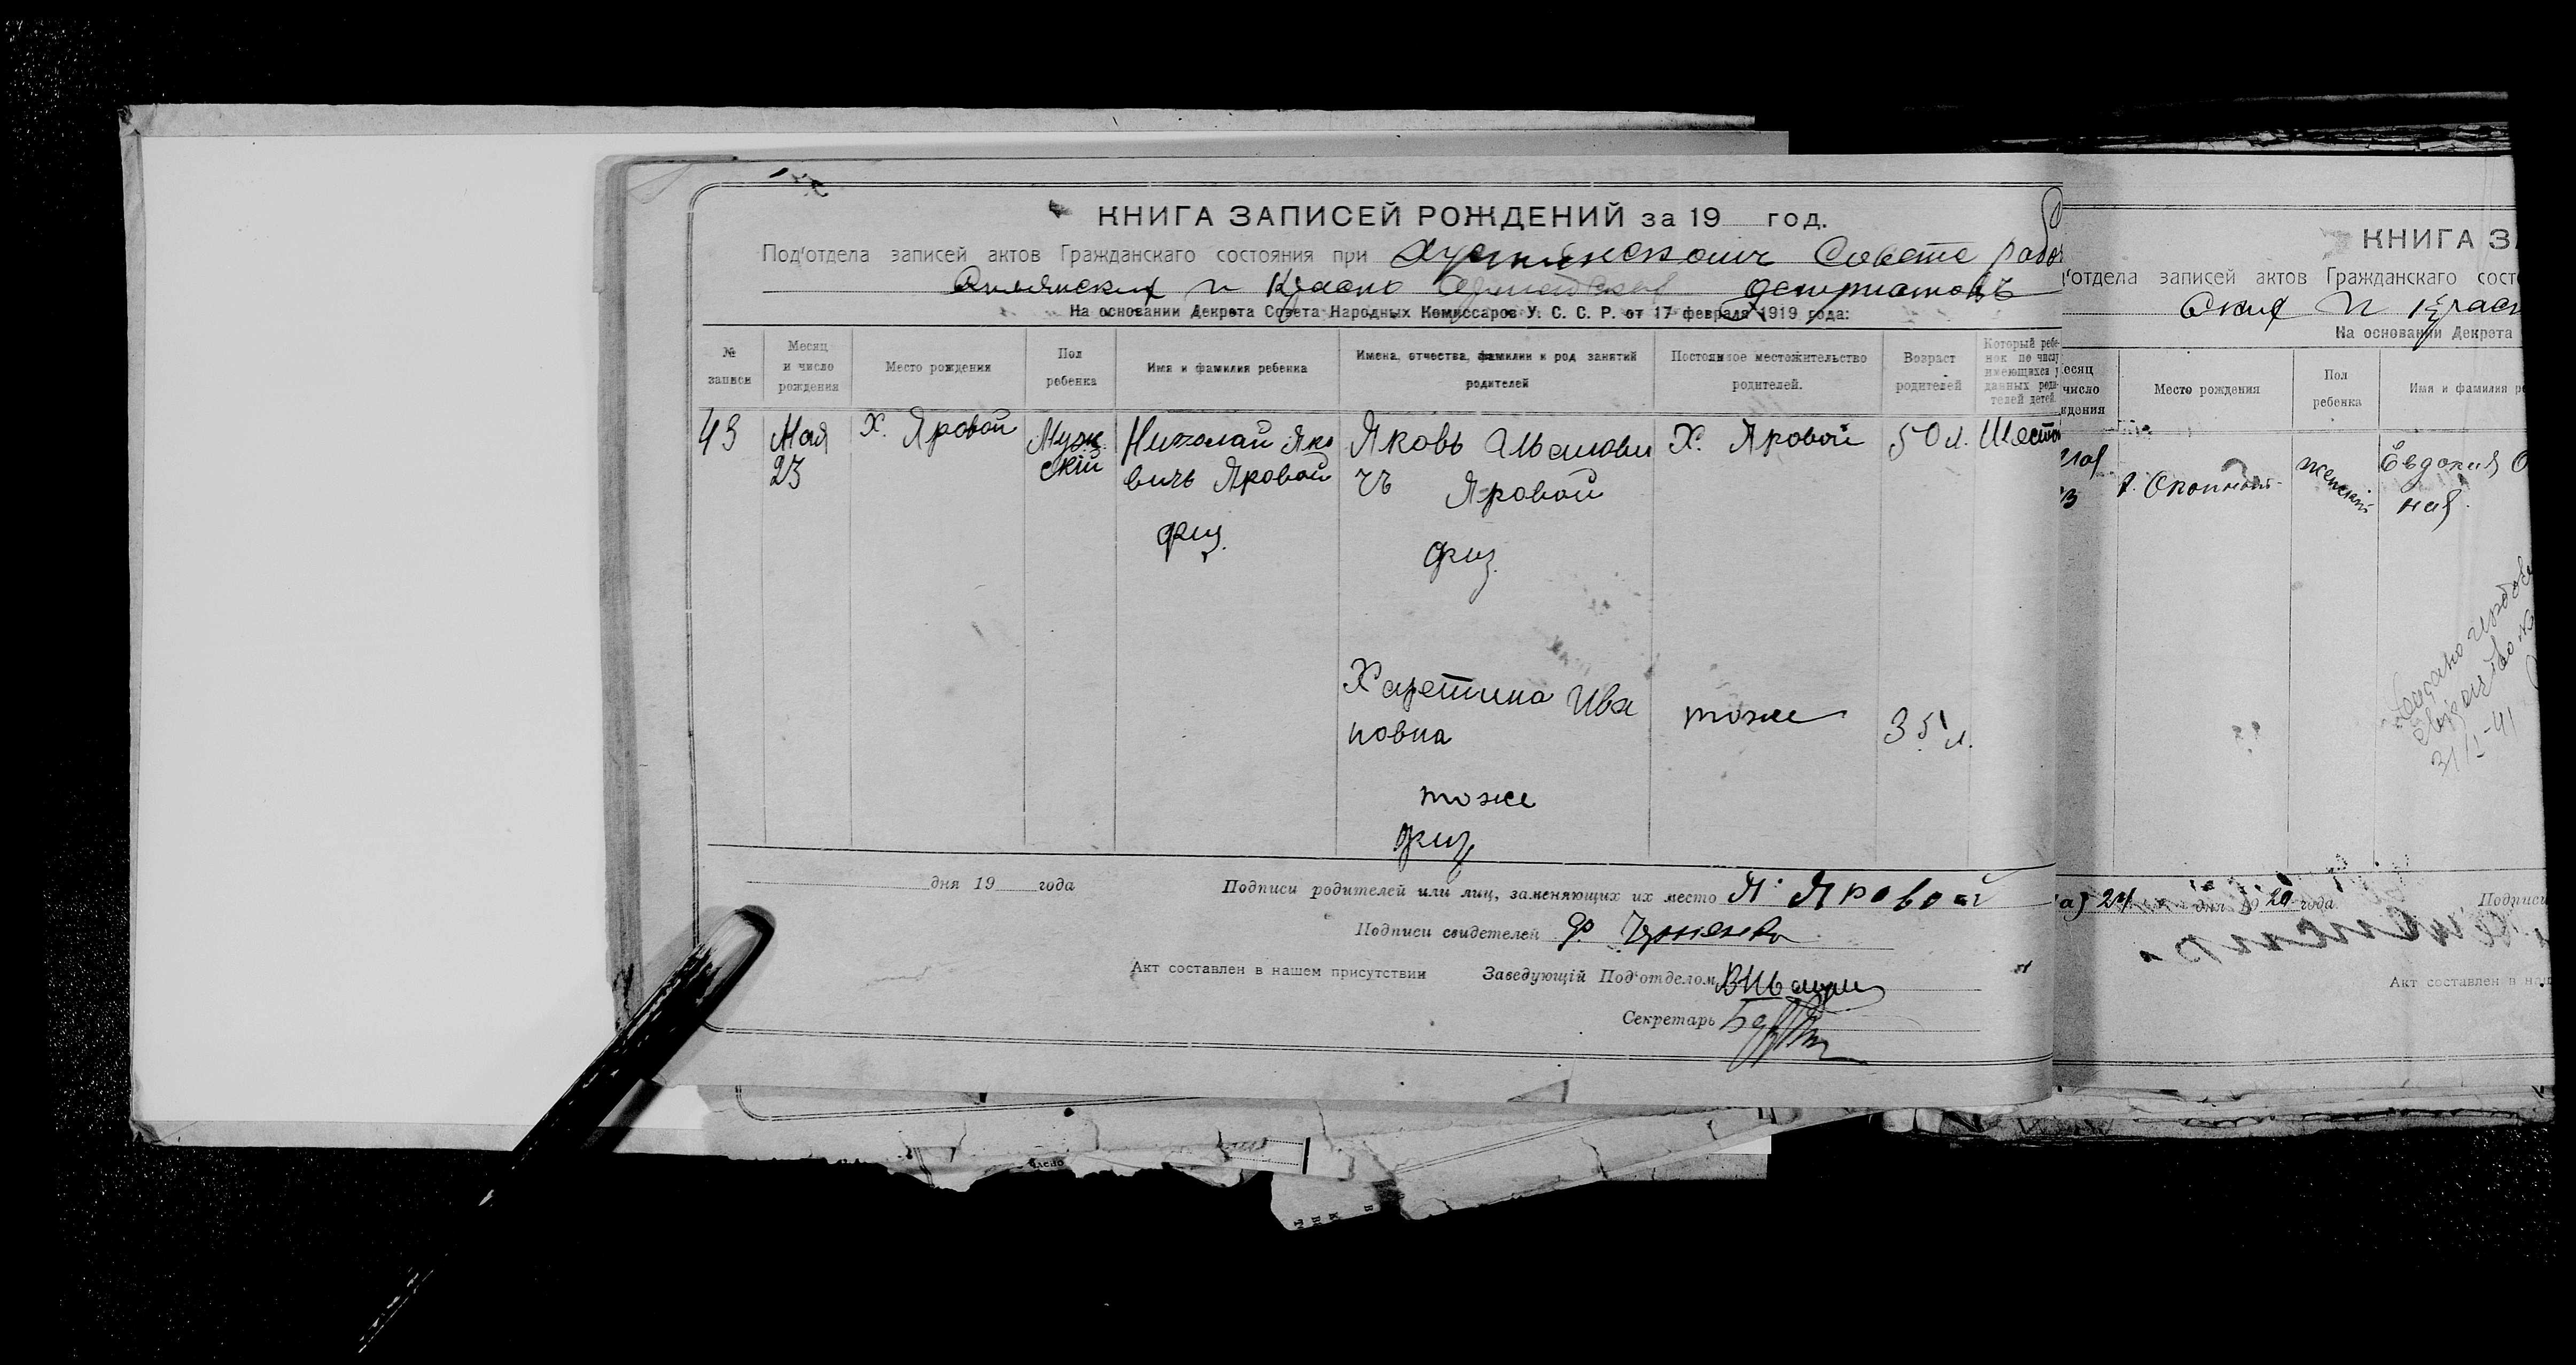 КНИГА ЗАПИСЕЙ РОЖДЕНИЙ за 19 год.
Под'отдела записей актов Гражданскаго состояния при Совете рабо
и Красно депутатовъ
На основании Декрета Совета Народных Комиссаров У. С. С. Р. от 17 февраля 1919 года:
№ записи
Месяц и число рождения
Место рождения
Пол ребенка
Имя и фамилия ребенка
Имена, отчества, фамилии и род занятий родителей
Постоянное местожительство родителей.
Возраст родителей
Который ребенок по числу имеющихся у данных родителей детей.
43
Мая 23
Х. Яровой
Мужский
Николай Яковичъ Яровой
Яковъ Ивановичъ Яровой
Х. Яровой
50 л.
Шесто
физ.
физ.
Харетина Ивановна
тоже
35 л.
тоже
физ
дня 19 года
Подписи родителей или лиц, заменяющих их место Я. Яровой
Подписи свидетелей Ф.
Акт составлен в нашем присутствии
Заведующій Под'отделом
Секретарь
КНИГА З
'отдела записей актов Гражданскаго сост
ских и Красн
На основании Декрета
есяц
число
ждения
Место рождения
Пол ребенка
Имя и фамилия ре
женский
Евдокия
ная
24 дня 1920 года
Подписи
Акт составлен в наш